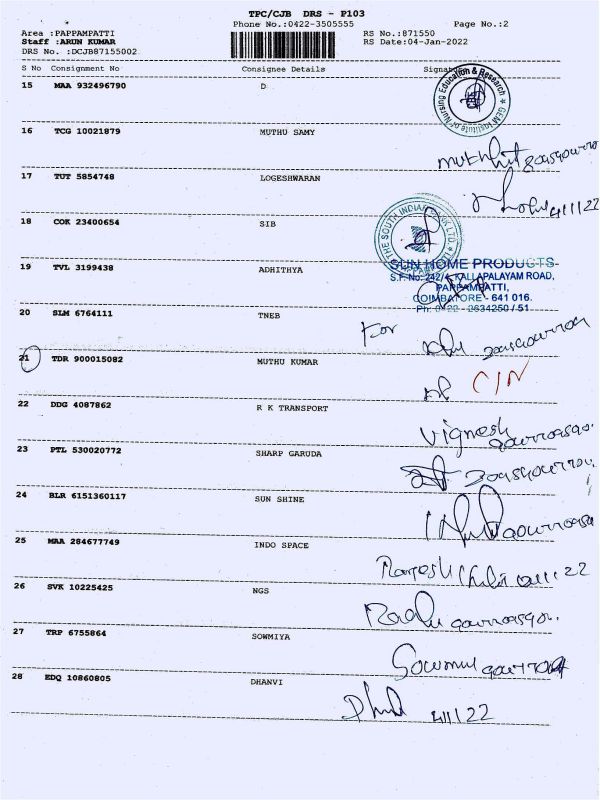 TPC/CJB DRS - P103
Phone No.:0422-3505555 Page No.:2
Area :PAPPAMPATTI RS No.:871550
Staff :ARUN KUMAR RS Date:04-Jan-2022
DRS No. :DCJB87155002
S No Consignment No Consignee Details Signature
15 MAA 932496790 D
GEM Institute of Nursing Education & Research
16 TCG 10021879 MUTHU SAMY
17 TUT 5854748 LOGESHWARAN
4/1/22
18 COK 23400654 SIB
THE SOUTH INDIAN BANK LTD.
19 TVL 3199438 ADHITHYA
SUN HOME PRODUCTS
S.F. No. 242/4, KALLAPALAYAM ROAD,
PAPPAMPATTI,
COIMBATORE - 641 016.
Ph: 0422 - 2634250 / 51
20 SLM 6764111 TNEB
For
21 TDR 900015082 MUTHU KUMAR
CIN
22 DDG 4087862 R K TRANSPORT
Vignesh
23 PTL 530020772 SHARP GARUDA
24 BLR 6151360117 SUN SHINE
25 MAA 284677749 INDO SPACE
Ramesh
26 SVK 10225425 NGS
27 TRP 6755864 SOWMIYA
28 EDQ 10860805 DHANVI
4/1/22